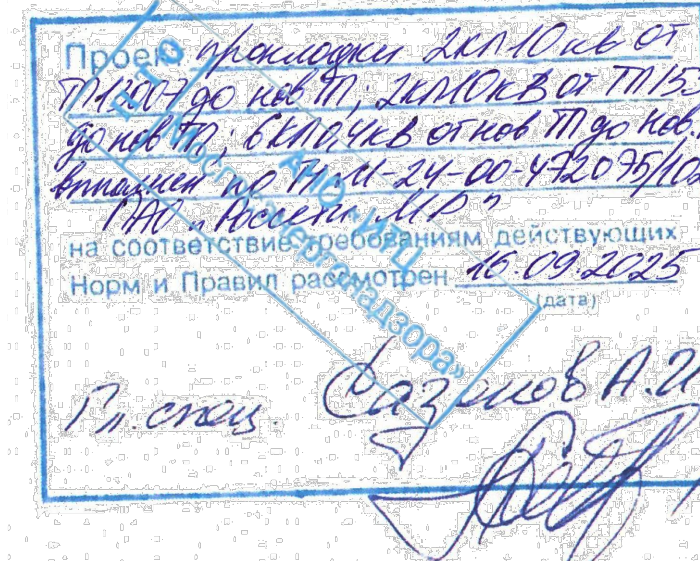 Проект прокладки 2КЛ10кВ от
ТП11007 до нов ТП; 2КЛ10кВ от ТП153
до нов ТП; 6КЛ0,4кВ от нов ТП до нов.
по И-24-00-472075/102
ПАО "Россети МР"
на соответствие требованиям действующих
Норм и Правил рассмотрен 16.09.2025
(дата)
Гл. спец. Сазонов А.И
АНО «ИТЦ
Мосгосэнергонадзора»